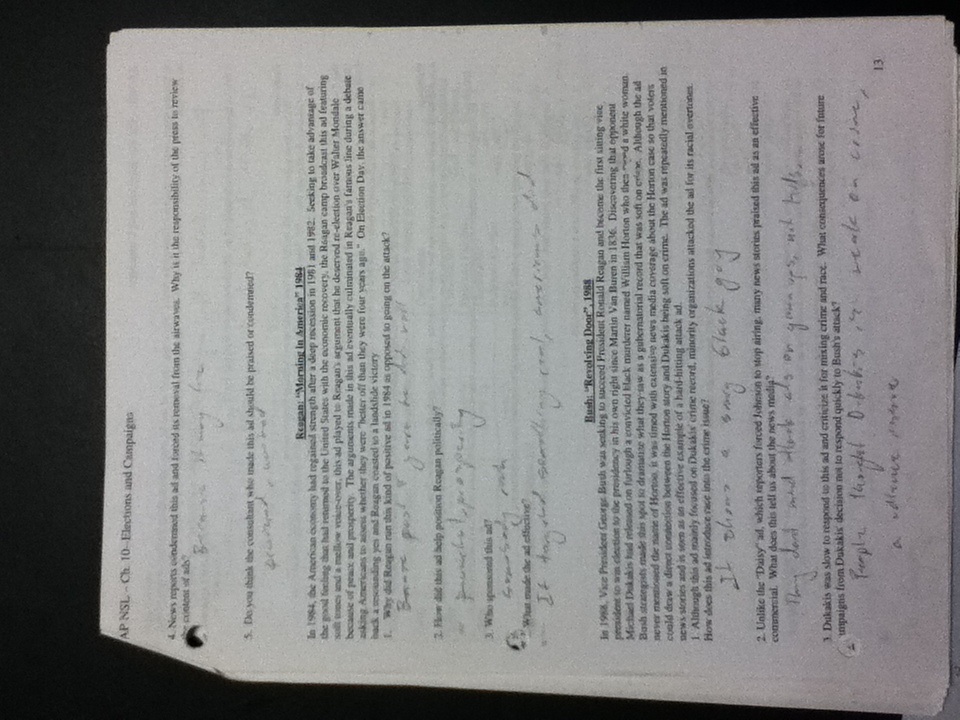 AP NSL - Ch. 10--Elections and Campaigns
4. News reports condemned this ad and forced its removal from the airwaves. Why is it the responsibility of the press to review
the content of ads?
Because it may be
5. Do you think the consultant who made this ad should be praised or condemned?
Reagan: "Morning in America" 1984
In 1984, the American economy had regained strength after a deep recession in 1981 and 1982. Seeking to take advantage of
the good feeling that had returned to the United States with the economic recovery, the Reagan camp broadcast this ad featuring
soft tones and a mellow voice-over, this ad played to Reagan's argument that he deserved re-election over Walter Mondale
because of peace and prosperity. The arguments made in this ad eventually culminated in Reagan's famous line during a debate
asking Americans to assess whether they were "better off than they were four years ago." On Election Day, the answer came
back a resounding yes and Reagan coasted to a landslide victory
1. Why did Reagan run this kind of positive ad in 1984 as opposed to going on the attack?
past 4 years he did well
2. How did this ad help position Reagan politically?
prosperity
3. Who sponsored this ad?
Somebody rich
What made the ad effective?
It targeted something real, americans did
Bush: "Revolving Door", 1988
In 1988, Vice President George Bush was seeking to succeed President Ronald Reagan and become the first sitting vice
president to win election to the presidency in his own right since Martin Van Buren in 1836. Discovering that opponent
Michael Dukakis had released on furlough a convicted black murderer named William Horton who then a white woman,
Bush strategists made this spot to dramatize what they saw as a gubernatorial record that was soft on crime. Although the ad
never mentioned the name of Horton, it was timed with extensive news media coverage about the Horton case so that voters
could draw a direct connection between the Horton story and Dukakis being soft on crime. The ad was repeatedly mentioned in
news stories and is seen as an effective example of a hard-hitting attack ad.
1. Although this ad mainly focused on Dukakis' crime record, minority organizations attacked the ad for its racial overtones.
How does this ad introduce race into the crime issue?
It shows a black guy
2. Unlike the "Daisy" ad, which reporters forced Johnson to stop airing, many news stories praised this ad as an effective
commercial. What does this tell us about the news media?
They dont mind attack ads on grown ups, not kids
3. Dukakis was slow to respond to this ad and criticize it for mixing crime and race. What consequences arose for future
campaigns from Dukakis' decision not to respond quickly to Bush's attack?
People thought Dukakis is weak on crime,
a
13